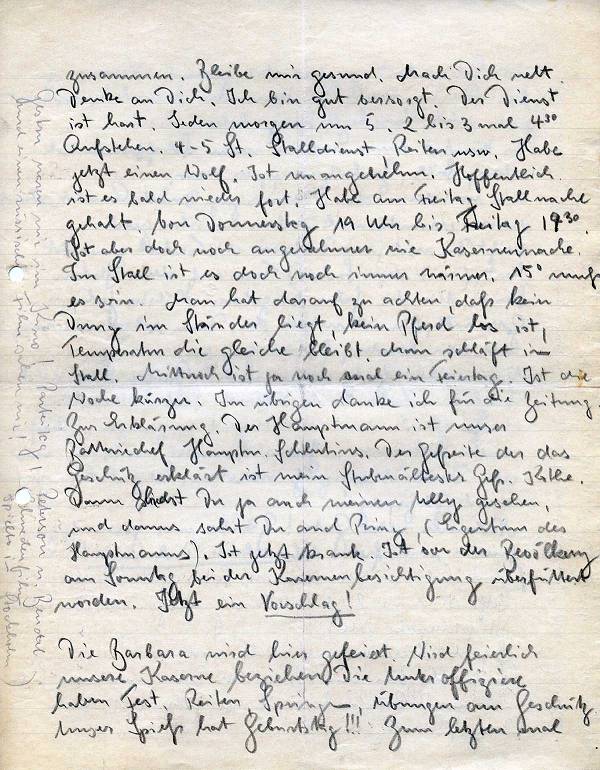 zusammen. Bleibe mir gesund. Mach Dich nett.
Denke an Dich. Ich bin gut versorgt. Der Dienst
ist hart. Jeden morgen um 5, 2 bis 3 mal 4³⁰
Aufstehen. 4-5 St. Stalldienst, Reiten usw. Habe
jetzt einen Wolf. Ist unangenehm. Hoffentlich
ist es bald wieder fort. Habe am Freitag Stallwache
gehabt. Von Donnerstag 19 Uhr bis Freitag 19³⁰.
Ist aber doch noch angenehmer wie Kasernenwache.
Im Stall ist es doch noch immer wärmer. 15° muß
es sein. Man hat darauf zu achten, daß kein
Dung im Ständer liegt, kein Pferd los ist,
Temperatur die gleiche bleibt. Man schläft im
Stall. Mittwoch ist ja noch mal ein Feiertag. Ist die
Woche kürzer. Im übrigen danke ich für die Zeitung.
Zur Erklärung. Der Hauptmann ist unser
Batteriechef Hauptm. Der Gefreite der das
Geschütz erklärt ist mein Stubenältester Gefr.
Dann siehst Du ja auch meinen gesehen,
und dann sahst Du auch Prinz, (Eigentum des
Hauptmanns). Ist jetzt krank. Ist von der Bevölkerung
am Sonntag bei der Kasernenbesichtigung überfüttert
worden. Jetzt ein Vorschlag!
Die Barbara wird hier gefeiert. Wird feierlich
unsere Kaserne bezichen. Die Unteroffiziere
haben Fest. Reiten, Springen, Übungen am Geschütz.
Unser Spieß hat Geburtstag!!! Zum letzten mal
Gestern waren wir im Kino!